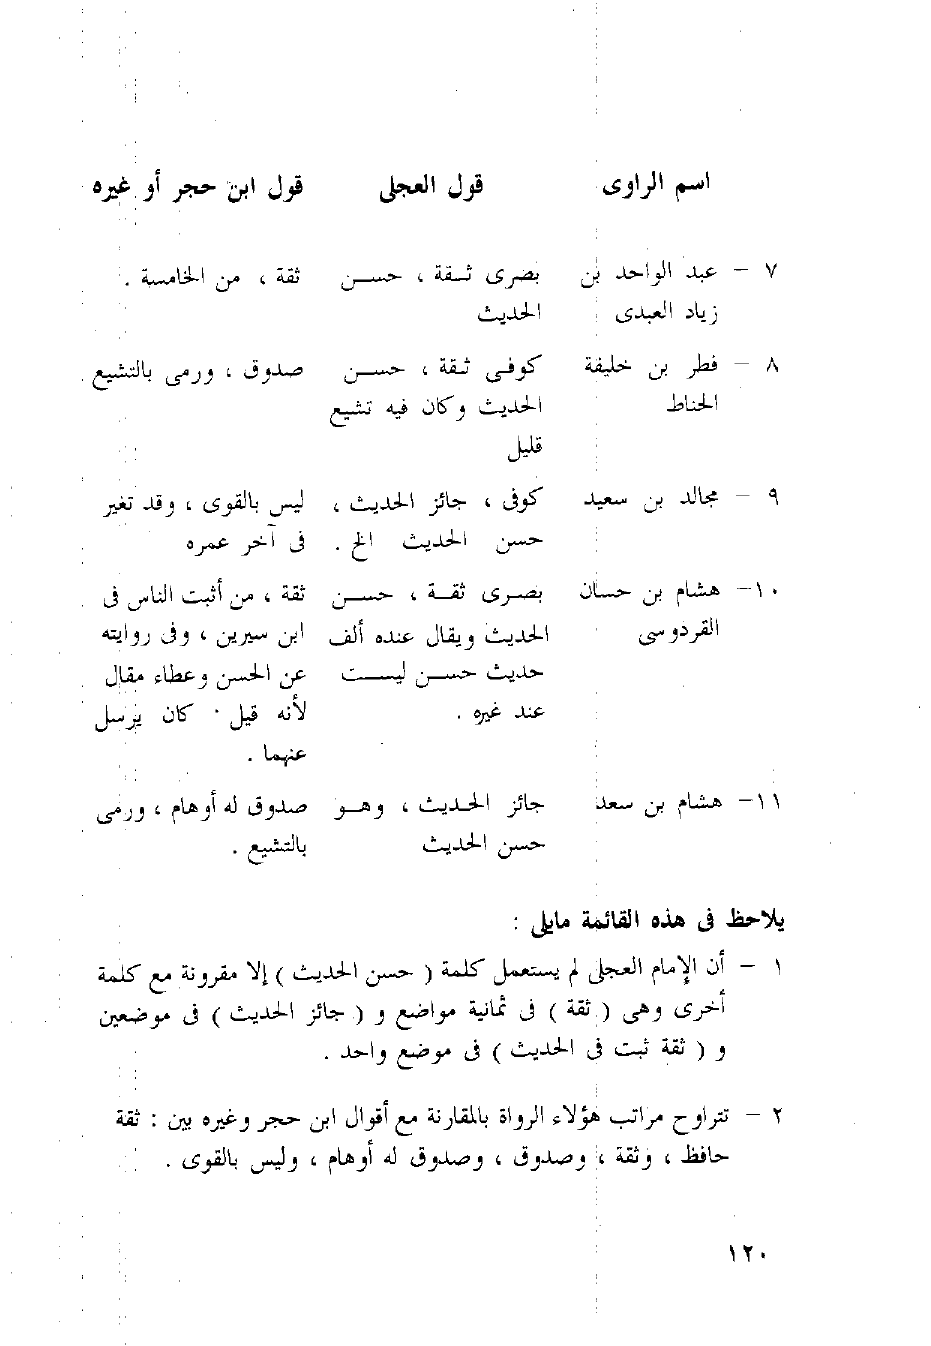 اسم الراوى قول العجلى قول ابن حجر أو غيره
٧ – عبد الواحد بن بصرى ثـقة ، حســن ثقة ، من الخامسة .
زياد العبدى الحديث
٨ – فطر بن خليفة كوفـى ثـقة ، حســن صدوق ، ورمى بالتشيع .
الحناط الحديث وكان فيه تشيع
قليل
٩ – مجالد بن سعيد كوفى ، جائز الحديث ، ليس بالقوى ، وقد تغير
حسن الحديث الخ . فى آخر عمره
١٠– هشام بن حسان بصـرى ثقــة ، حســن ثقة ، من أثبت الناس فى
القردوسى الحديث ويقال عنده ألف ابن سيرين ، وفى روايته
حديث حســن ليســت عن الحسن وعطاء مقال
عند غيره . لأنه قيل كان يرسل
عنهما .
١١– هشام بن سعد جائز الحـديث ، وهــو صدوق له أوهام ، ورمى
حسن الحديث بالتشيع .
يلاحظ فى هذه القائمة مايلى :
١ – أن الإمام العجلى لم يستعمل كلمة ( حسن الحديث ) إلا مقرونة مع كلمة
أخرى وهى ( ثقة ) فى ثمانية مواضع و ( جائز الحديث ) فى موضعين
و ( ثقة ثبت فى الحديث ) فى موضع واحد .
٢ – تتراوح مراتب هؤلاء الرواة بالمقارنة مع أقوال ابن حجر وغيره بين : ثقة
حافظ ، وثقة ، وصدوق ، وصدوق له أوهام ، وليس بالقوى .
١٢٠